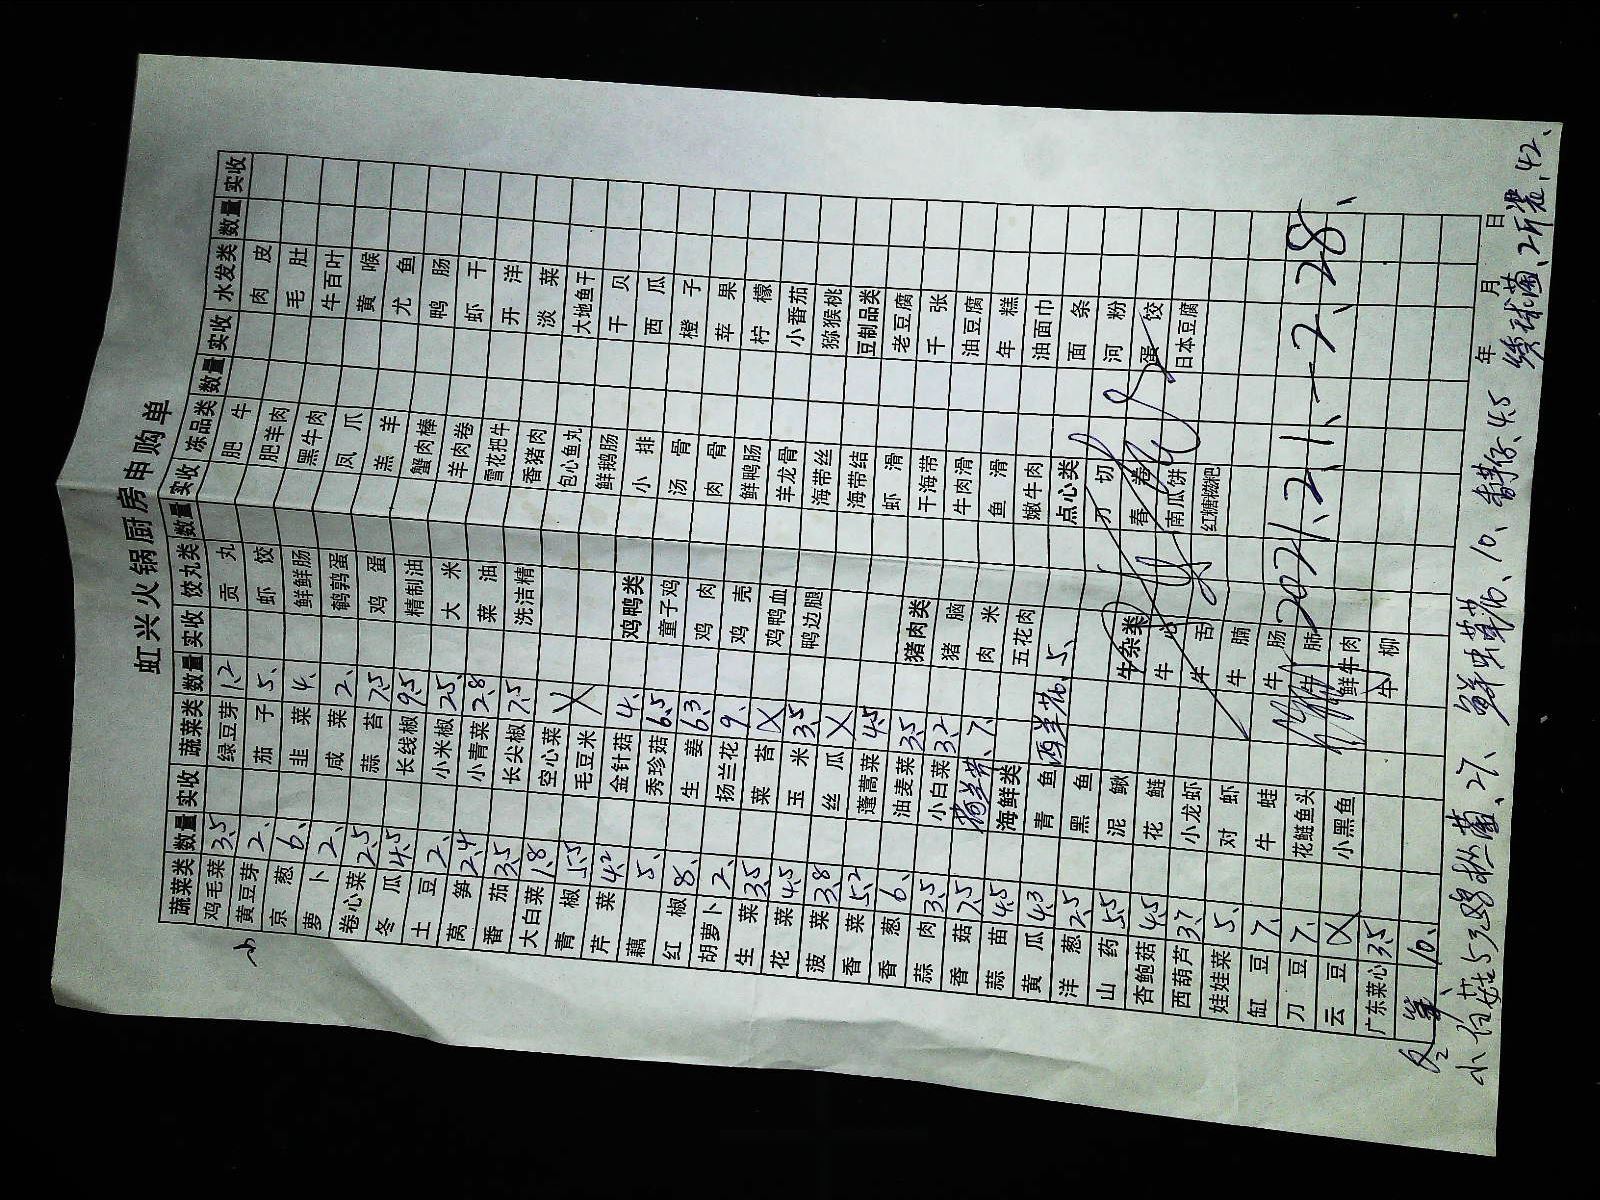 虹兴火锅厨房申购单
蔬菜类 数量 实收 蔬菜类 数量 实收 饺丸类 数量 实收 冻品类 数量 实收 水发类 数量 实收
鸡毛菜 3.5 绿豆芽 1.2 贡丸 肥牛 肉皮
黄豆芽 2、 茄子 5、 虾饺 肥羊肉 毛肚
京葱 6、 韭菜 4、 鲜鲜肠 黑牛肉 牛百叶
萝卜 2、 咸菜 2、 鹌鹑蛋 凤爪 黄喉
卷心菜 2.5 蒜苔 7.5 鸡蛋 羔羊 尤鱼
冬瓜 4.5 长线椒 9.5 精制油 蟹肉棒 鸭肠
土豆 2、 小米椒 25、 大米 羊肉卷 虾干
莴笋 2.4 小青菜 2.8 菜油 雪花把牛 开洋
番茄 3.5 长尖椒 7.5 洗洁精 香猪肉 淡菜
大白菜 1.8 空心菜 X 包心鱼丸 大地鱼干
青椒 5.5 毛豆米 X 鲜鹅肠 干贝
芹菜 4.2 金针菇 4、 鸡鸭类 小排 西瓜
藕 5、 秀珍菇 6.5 童子鸡 汤骨 橙子
红椒 8、 生姜 6.3 鸡肉 肉骨 苹果
胡萝卜 2、 扬兰花 9、 鸡壳 鲜鸭肠 柠檬
生菜 3.5 菜苔 X 鸡鸭血 羊龙骨 小番茄
花菜 4.5 玉米 3.5 鸭边腿 海带丝 猕猴桃
菠菜 3.8 丝瓜 X 海带结 豆制品类
香菜 5.2 蓬蒿菜 4.5 虾滑 老豆腐
香葱 6、 油麦菜 3.5 猪肉类 干海带 千张
蒜肉 3.5 小白菜 3.2 猪脑 牛肉滑 油豆腐
香菇 7.5 7、 肉米 鱼滑 年糕
蒜苗 4.5 海鲜类 五花肉 嫩牛肉 油面巾
黄瓜 4.3 青鱼 西芹 5、 点心类 面条
洋葱 2.5 黑鱼 刀切 河粉
山药 5.5 泥鳅 牛杂类 春卷 蛋饺
杏鲍菇 4.5 花鲢 牛心 南瓜饼 日本豆腐
西葫芦 3.7 小龙虾 牛舌 红糖糍粑
娃娃菜 5、 对虾 牛腩
缸豆 7、 牛蛙 牛肠
刀豆 7、 花鲢鱼头 牛肺
云豆 X 小黑鱼 鲜牛肉
广东菜心 3.5 牛柳
冬笋 10、
2021、2、1、—2、28、
年 月 日